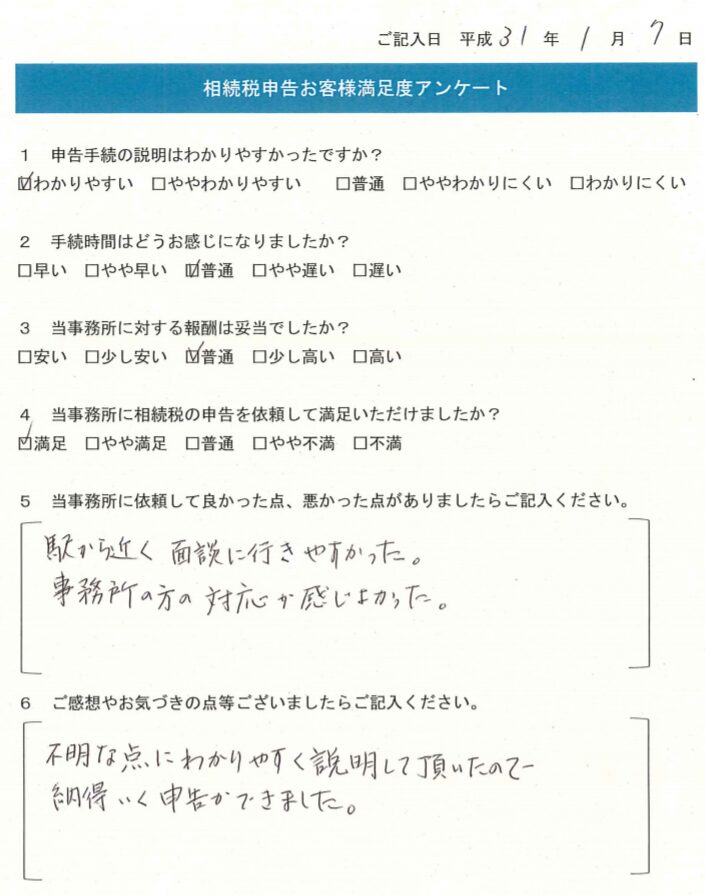 ご記入日 平成 31 年 1 月 7 日
相続税申告お客様満足度アンケート
1 申告手続の説明はわかりやすかったですか？
☑わかりやすい □ややわかりやすい □普通 □ややわかりにくい □わかりにくい
2 手続時間はどうお感じになりましたか？
□早い □やや早い ☑普通 □やや遅い □遅い
3 当事務所に対する報酬は妥当でしたか？
□安い □少し安い ☑普通 □少し高い □高い
4 当事務所に相続税の申告を依頼して満足いただけましたか？
☑満足 □やや満足 □普通 □やや不満 □不満
5 当事務所に依頼して良かった点、悪かった点がありましたらご記入ください。
駅から近く 面談に行きやすかった。
事務所の方の対応が感じよかった。
6 ご感想やお気づきの点等ございましたらご記入ください。
不明な点にわかりやすく説明して頂いたので
納得いく申告ができました。